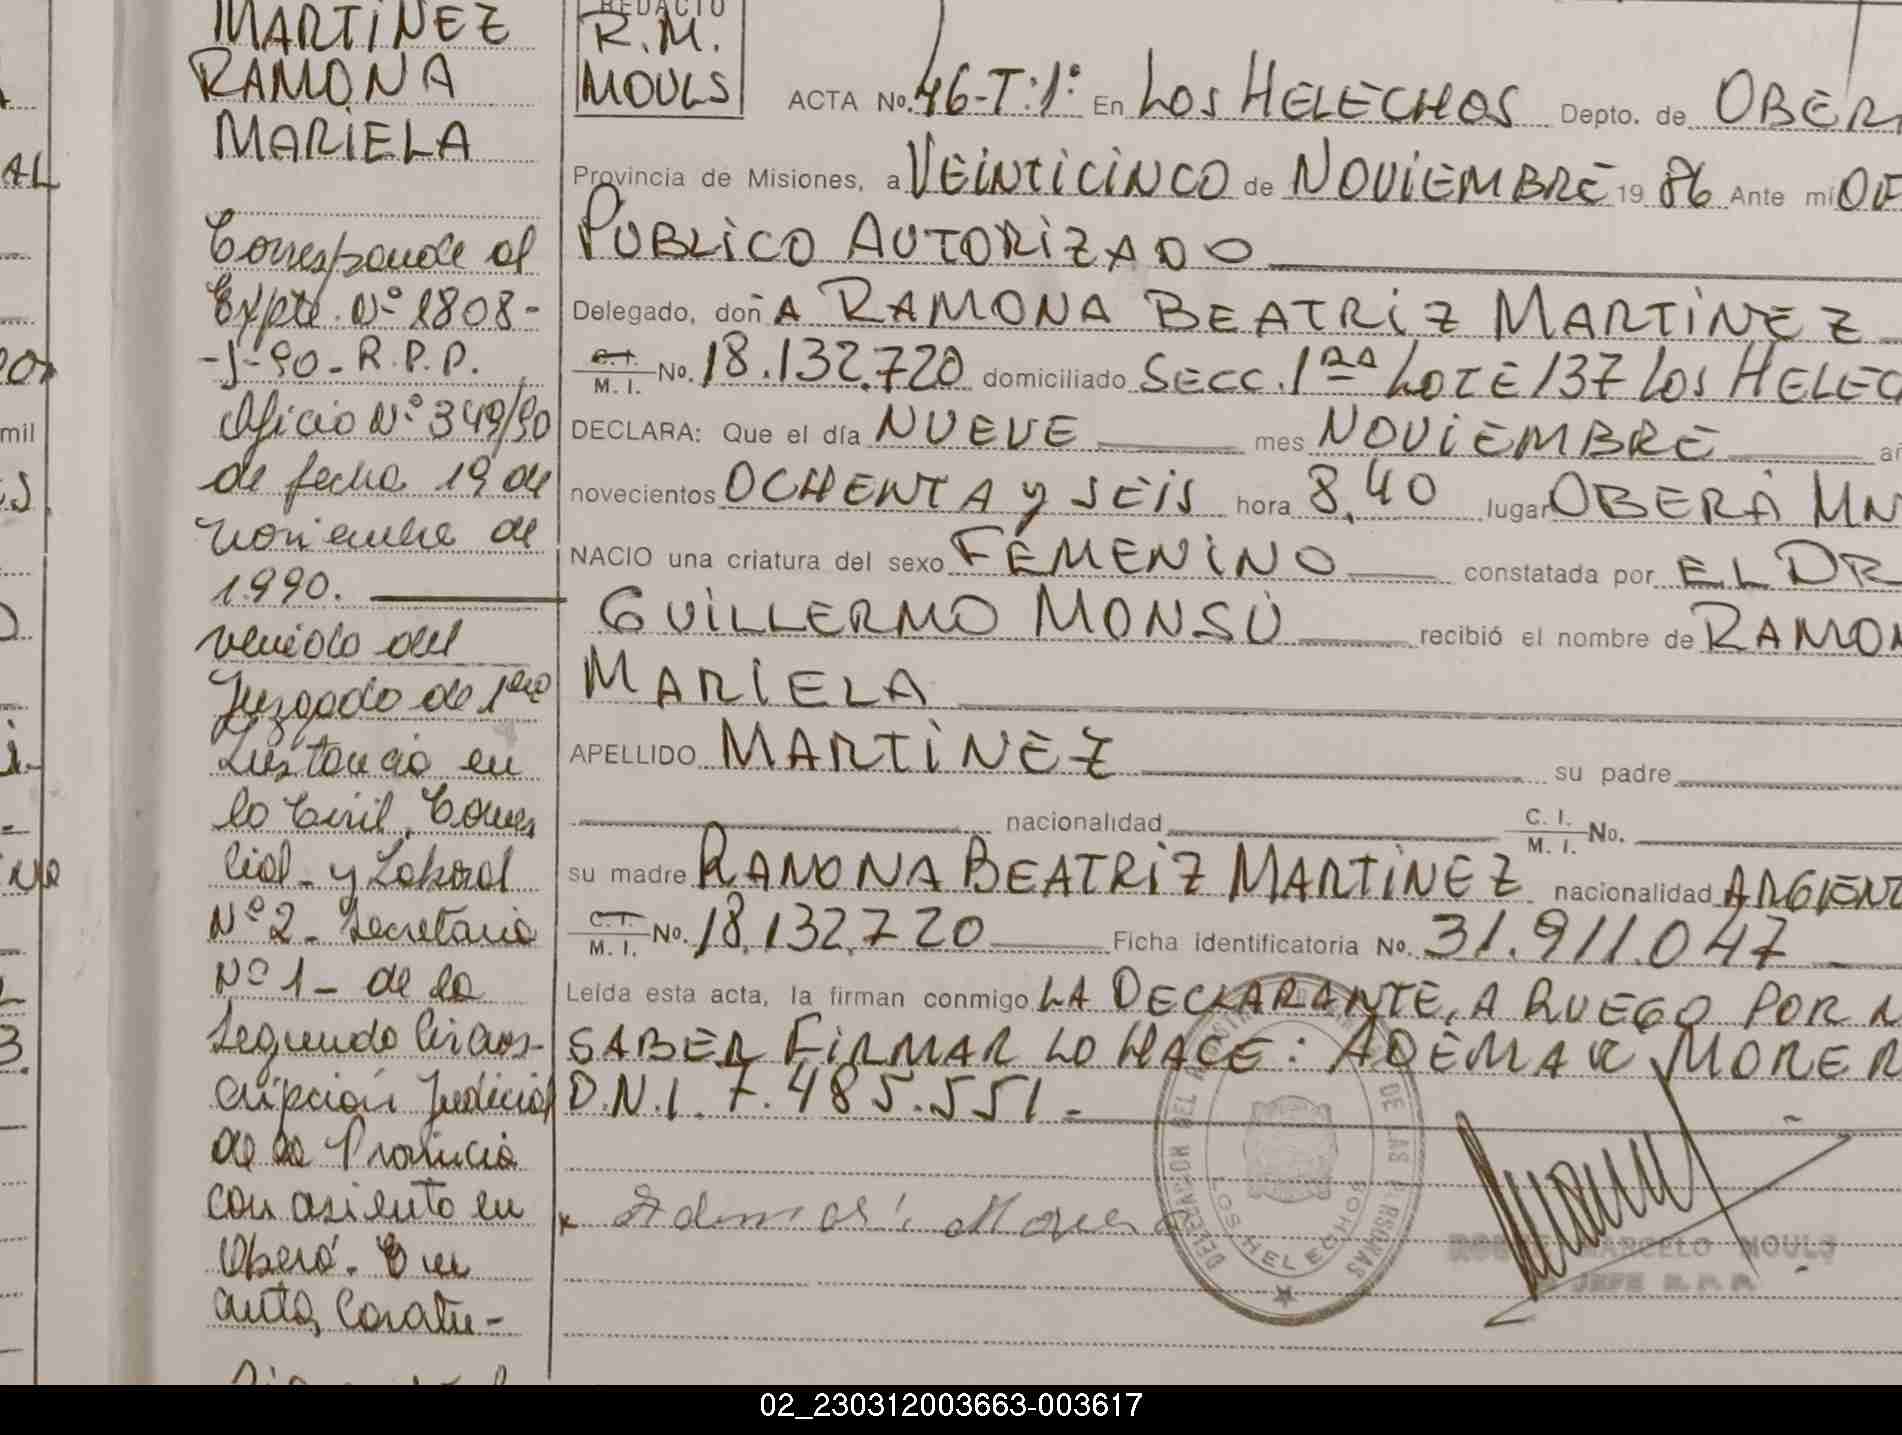 MARTINEZ
RAMONA
MARIELA
Corresponde al
Expte. Nº 1808-
-J-90-R.P.P.
Oficio Nº 349/90
de fecha 19 de
noviembre de
1990.
venido del
Juzgado de 1era
Instancia en
lo Civil, Comer
cial- y Laboral
Nº 2- Secretaria
Nº 1- de la
Segunda Circuns-
cripción Judicial
de la Provincia
con asiento en
Oberá- En
autos Caratu-
REDACTO
R.M.
MOULS
ACTA No. 46-T:1º En LOS HELECHOS Depto. de OBER
Provincia de Misiones, a VEINTICINCO de NOVIEMBRE 19 86 Ante mi OF
PUBLICO AUTORIZADO
Delegado, doñA RAMONA BEATRIZ MARTINEZ
C.I. M. I. No. 18.132.720 domiciliado SECC. 1RA LOTE 137 LOS HELEC
DECLARA: Que el día NUEVE mes NOVIEMBRE añ
novecientos OCHENTA y SEIS hora 8,40 lugar OBERÁ MN
NACIO una criatura del sexo FEMENINO constatada por EL DR
GUILLERMO MONSÚ recibió el nombre de RAMON
MARIELA
APELLIDO MARTINEZ su padre
nacionalidad C. I. M. I. No.
su madre RAMONA BEATRIZ MARTINEZ nacionalidad ARGENT
C.I. M. I. No. 18.132.720 Ficha identificatoria No. 31.911.047
Leída esta acta, la firman conmigo LA DECLARANTE, A RUEGO POR N
SABER FIRMAR LO HACE: ADEMAR MORER
D.N.I. 7.485.551.-
DELEGACION DEL REGISTRO DE LAS PERSONAS
LOS HELECHOS
MARCELO MOULS
JEFE R.P.P.
02_230312003663-003617